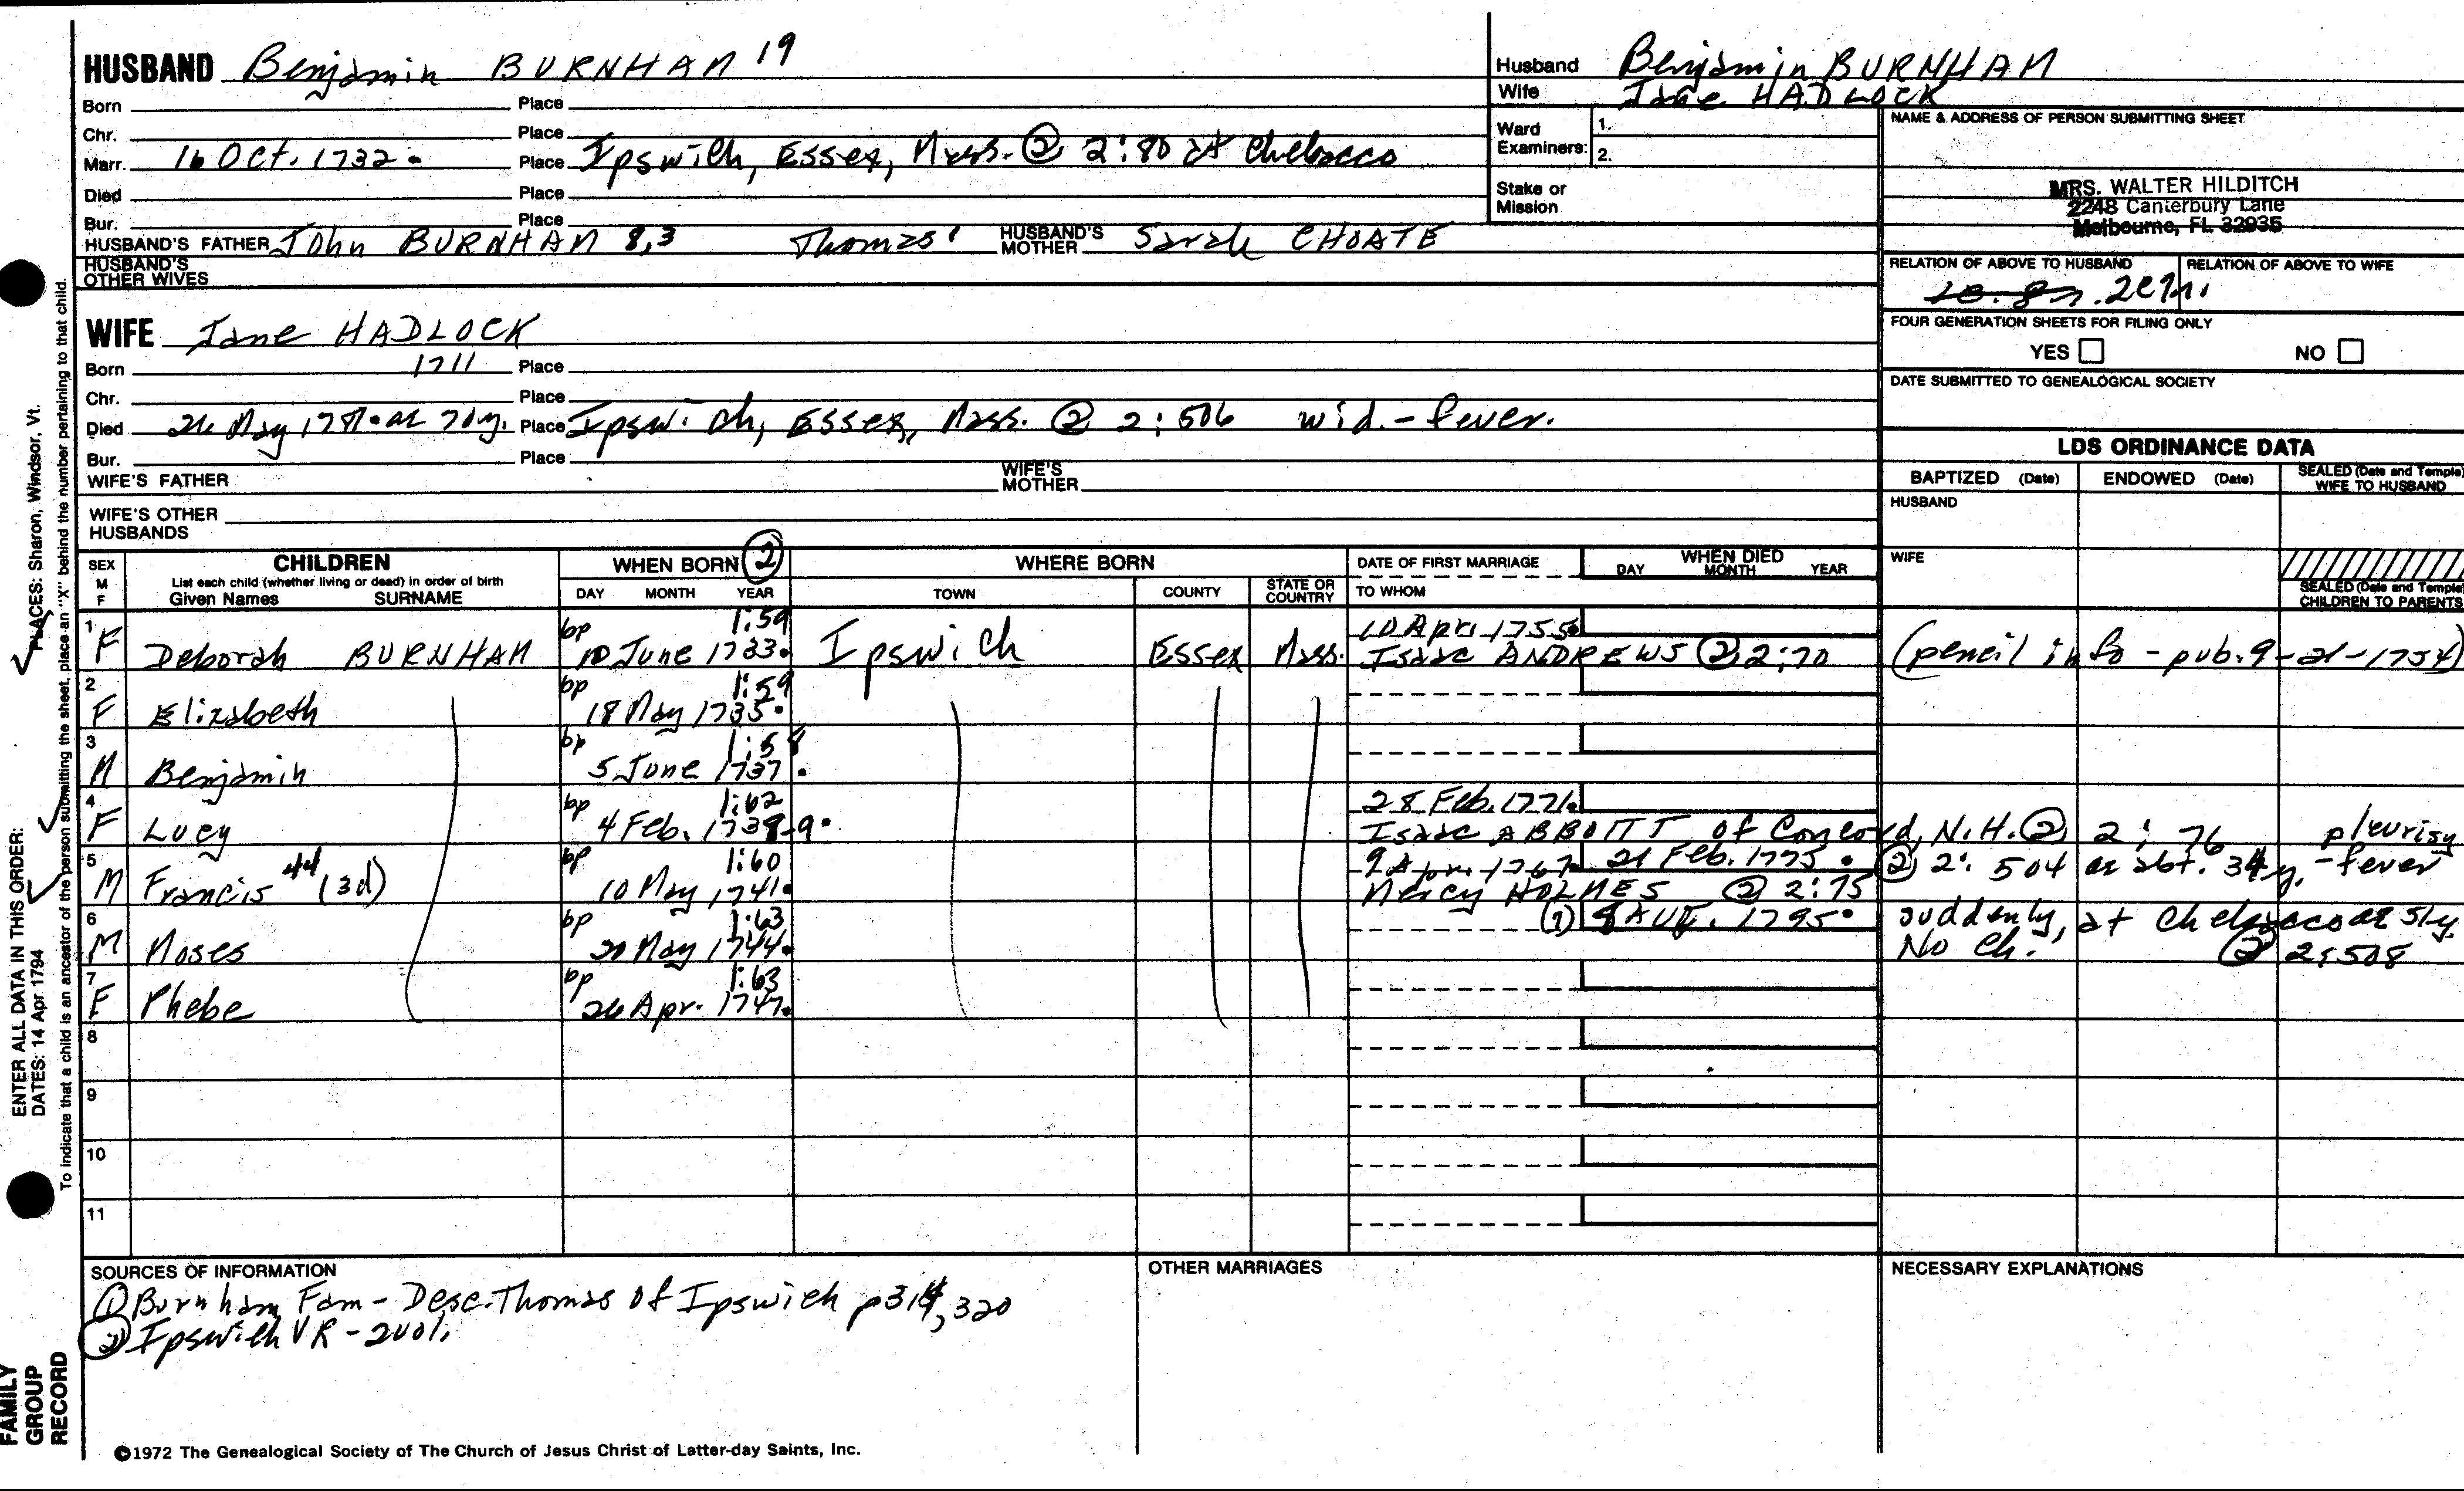 HUSBAND Benjamin BURNHAM 19
Born Place
Chr. Place
Marr. 16 Oct. 1732. Place Ipswich, Essex, Mass. ② 2:80 at Chebacco
Died Place
Bur. Place
HUSBAND'S FATHER John BURNHAM 8,3 Thomas1 HUSBAND'S MOTHER Sarah CHOATE
HUSBAND'S OTHER WIVES
WIFE Jane HADLOCK
Born 1711 Place
Chr. Place
Died May ae 70y. Place Ipswich, Essex, Mass. ② 2:506 wid. - fever.
Bur. Place
WIFE'S FATHER WIFE'S MOTHER
WIFE'S OTHER HUSBANDS
Husband Benjamin BURNHAM
Wife Jane HADLOCK
Ward Examiners: 1.
2.
Stake or Mission
NAME & ADDRESS OF PERSON SUBMITTING SHEET
MRS. WALTER HILDITCH
2248 Canterbury Lane
Melbourne, FL 32935
RELATION OF ABOVE TO HUSBAND RELATION OF ABOVE TO WIFE
FOUR GENERATION SHEETS FOR FILING ONLY
YES NO
DATE SUBMITTED TO GENEALOGICAL SOCIETY
LDS ORDINANCE DATA
BAPTIZED (Date) ENDOWED (Date) SEALED (Date and Temple) WIFE TO HUSBAND
HUSBAND
WIFE
SEALED (Date and Temple) CHILDREN TO PARENTS
SEX M F
CHILDREN
List each child (whether living or dead) in order of birth
Given Names SURNAME
WHEN BORN ②
DAY MONTH YEAR
WHERE BORN
TOWN COUNTY STATE OR COUNTRY
DATE OF FIRST MARRIAGE
TO WHOM
WHEN DIED
DAY MONTH YEAR
1 bp 1:59 10 Apr. 1755.
F Deborah BURNHAM 10 June 1733. Ipswich Essex Mass. Isaac ANDREWS ② 2:70 (pencil info - pub. 9-21-1754)
2 bp 1:59
F Elizabeth 18 May 1735.
3 bp 1:58
M Benjamin 5 June 1737.
4 bp 1:62 28 Feb. 1771.
F Lucy 4 Feb. 1738-9. Isaac ABBOTT of Concord, N.H. ② 2:76
5 bp 1:60 9 Apr. 1767. 21 Feb. 1775. ② 2:504 ae abt. 34y. - pleurisy fever
M Francis 4d (3d) 10 May 1741. Mercy HOLMES ② 2:75
6 bp 1:63 ① 8 Aug. 1795. suddenly, at Chebacco ae 51y.
M Moses 20 May 1744. No Ch. ② 2:508
7 bp 1:63
F Phebe 26 Apr. 1747.
8
9
10
11
SOURCES OF INFORMATION
① Burnham Fam - Desc. Thomas of Ipswich p314, 320
② Ipswich VR - 2vol.
OTHER MARRIAGES
NECESSARY EXPLANATIONS
©1972 The Genealogical Society of The Church of Jesus Christ of Latter-day Saints, Inc.
FAMILY GROUP RECORD
ENTER ALL DATA IN THIS ORDER:
DATES: 14 Apr 1794 PLACES: Sharon, Windsor, Vt.
To indicate that a child is an ancestor of the person submitting the sheet, place an "X" behind the number pertaining to that child.